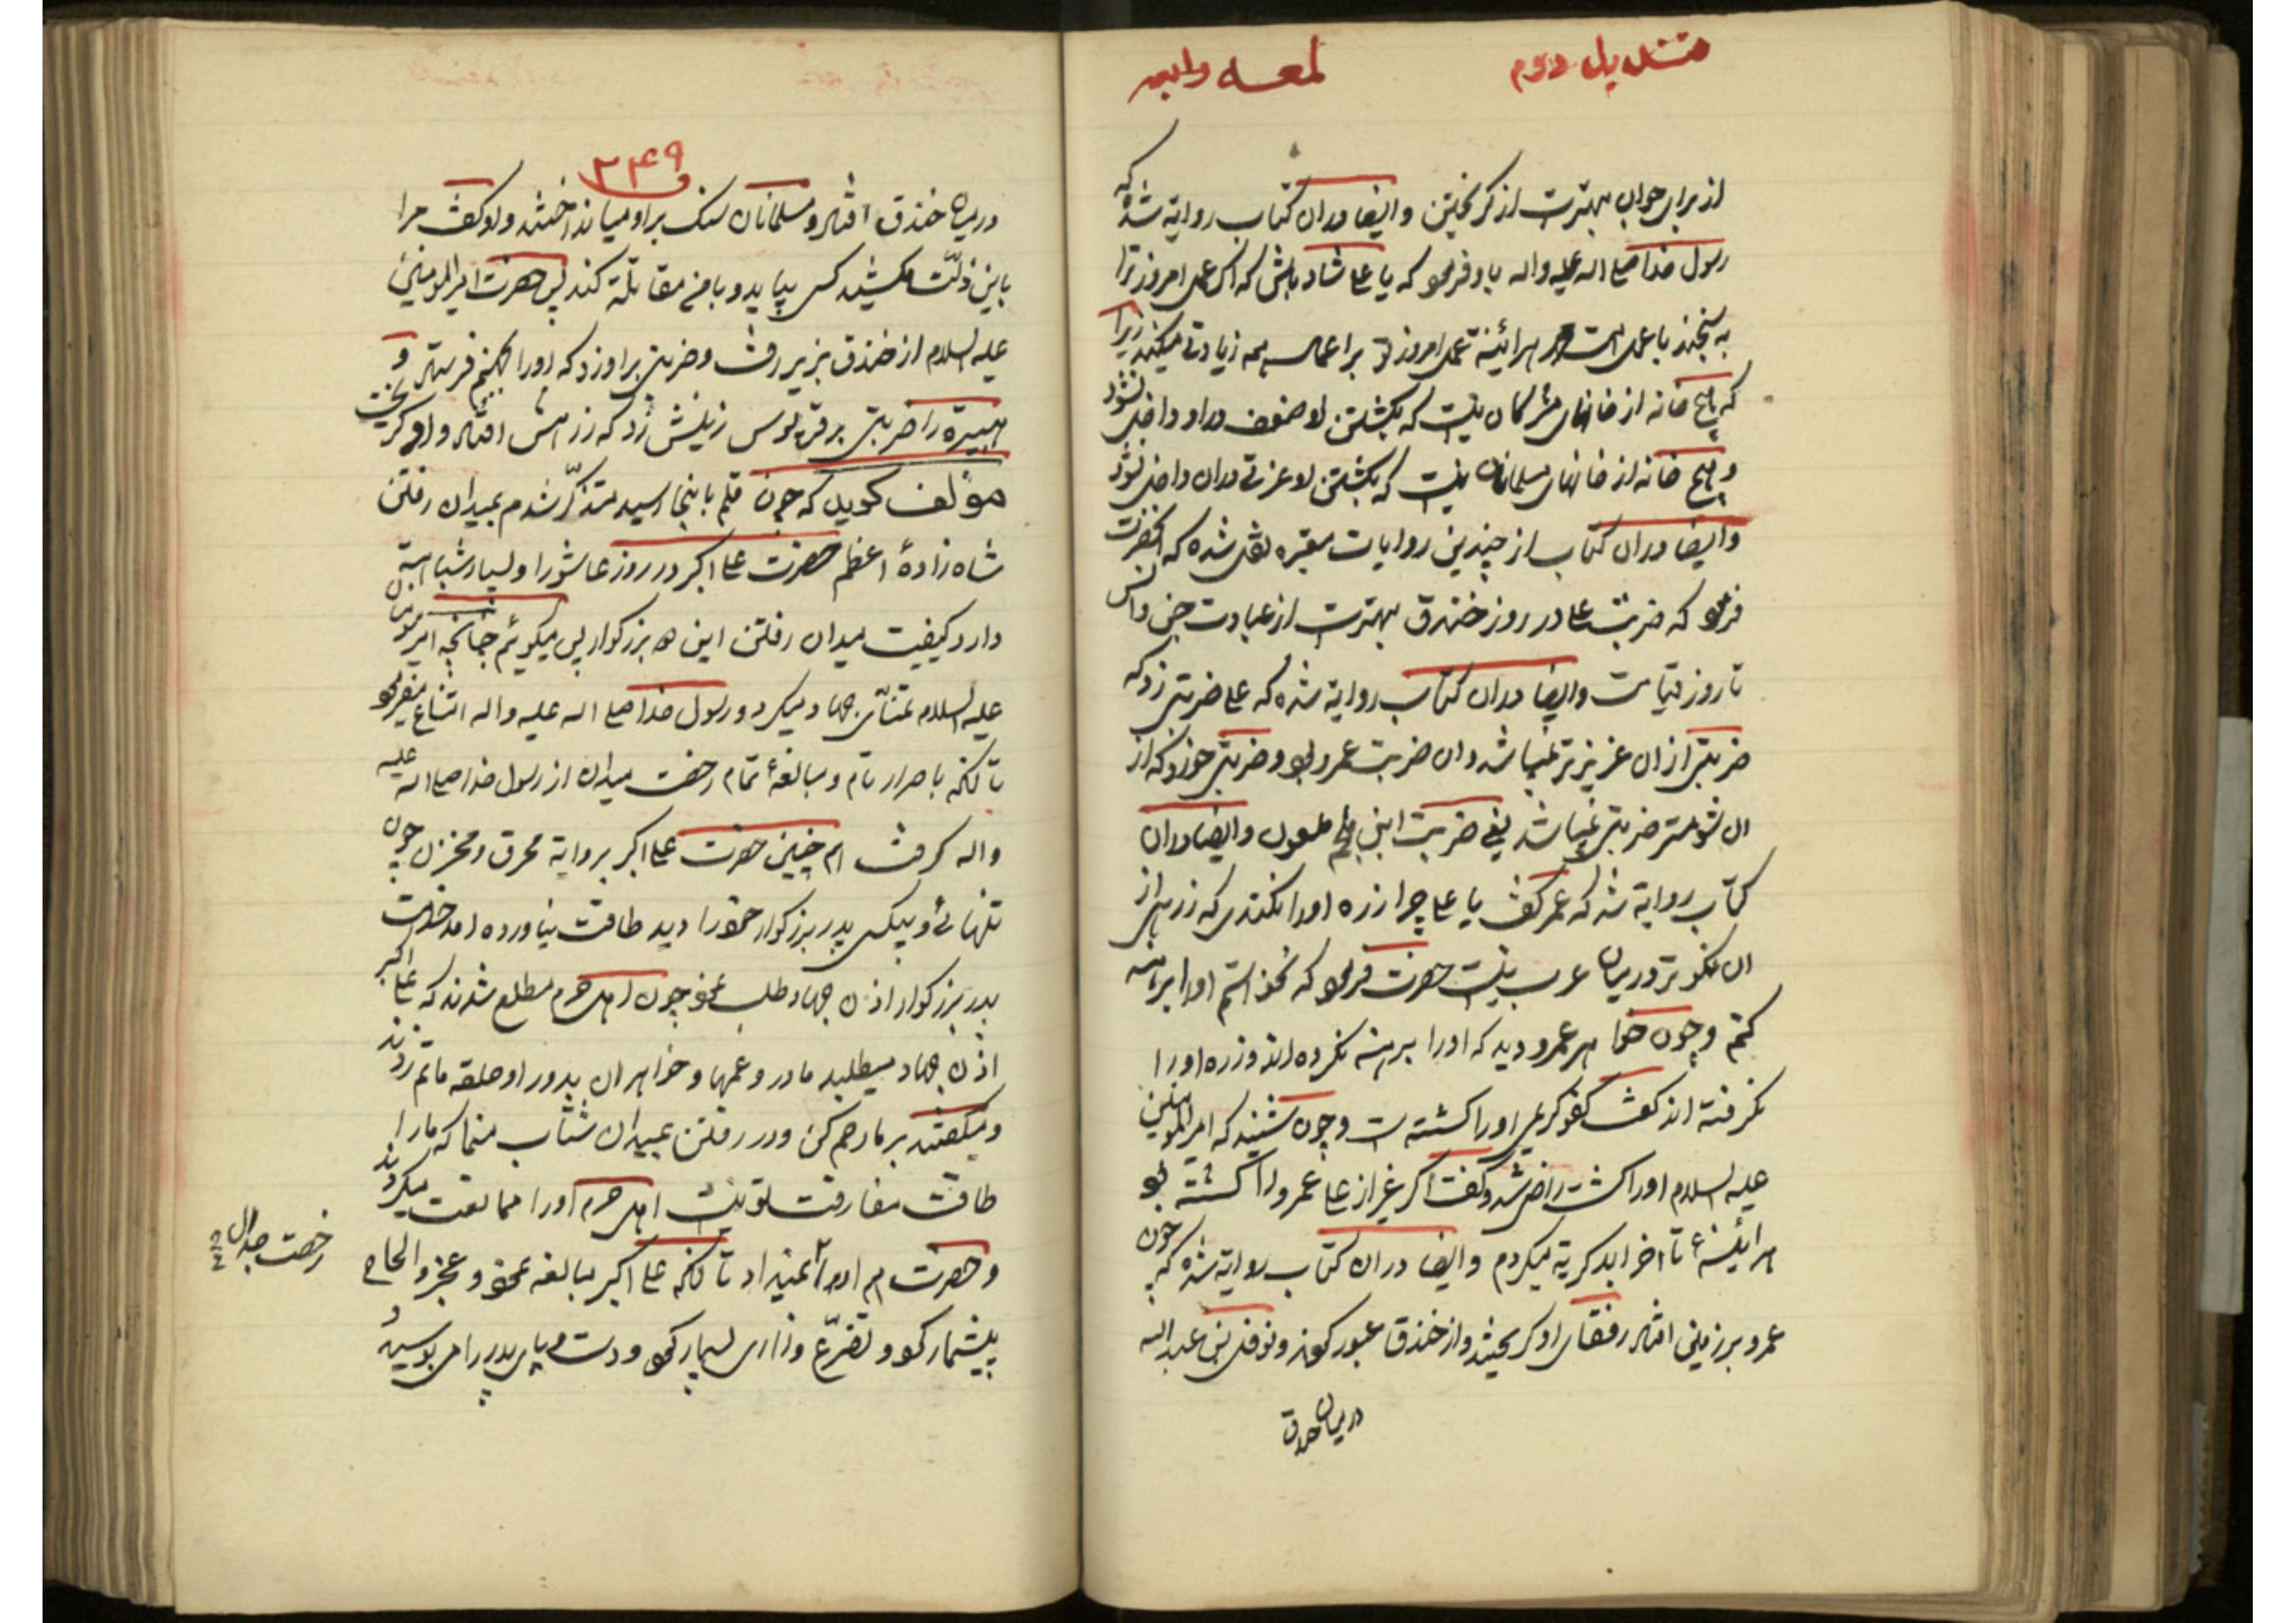 قندیل دوم لمعه رابعه
از برای جوان بهتر است از گریختن و ایضا دران کتاب روایة شده که
رسول خدا صلی الله علیه واله باو فرمود که یا علی شاد باش که اگر عمل امروز ترا
به سنجند با عمل امت هر آئینه عمل امروز تو بر اعمال همه زیادتی میکند زیرا
که هیچ خانه از خانهای مشرکان نیست که بکشتن او ضعف دراو داخل نشود
و هیچ خانه از خانهای مسلمانان نیست که بکشتن او عزتی دران داخل نشود
وایضا دران کتاب از چندین روایات معتبره نقل شده که آنحضرت
فرمود که ضربت علی در روز خندق بهتر است از عبادت جن وانس
تا روز قیامت وایضا دران کتاب روایة شده که علی ضربتی زد که
ضربتی ازان عزیزتر نمیباشد وان ضربت عمرو بود وضربتی خورد که از
ان شومتر ضربتی نمیباشد یعنی ضربت ابن ملجم ملعون وایضا دران
کتاب روایة شد که عمر گفت یا علی چرا زره اورا نکندی که زرهی از
ان نیکوتر درمیان عرب نیست حضرت فرمود که نخواستم اورا برهنه
کنم وچون خواهر عمرو دید که اورا برهنه نکرده اند وزره اورا
نگرفته اند گفت کفو کریمی اورا کشته است وچون شنید که امیرالمومنین
علیه السلام اورا کشت راضی شد وگفت اگر غیر از علی عمرو را کشته بود
هر آئینهٔ تا اخر ابد گریه میکردم وایضا دران کتاب روایة شده که چون
عمرو بر زمین افتاد رفقای او گریختند واز خندق عبور کردند ونوفل بن عبدالله
درمیان خندق
۳۴۹
درمیان خندق افتاد ومسلمانان سنگ براو میانداختند واو گفت مرا
باین ذلت مکشید کسی بیاید وبا من مقاتلة کند پس حضرت امیرالمومنین
علیه السلام از خندق بزیر رفت وضربتی براو زد که اورا بجهنم فرستاد و
هبیرة را ضربتی برقرپوس زینش زد که زرهش افتاد واو گریخت
مؤلف گوید که چون قلم باینجا رسید متذکّر شدم بمیدان رفتن
شاه زادهٔ اعظم حضرت علی اکبر در روز عاشورا وبسیار شباهة
دارد کیفیت میدان رفتن این دو بزرگوار پس میگوئیم چنانچه امیرمومنان
علیه السلام تمنّای جهاد میکرد ورسول خدا صلی الله علیه واله امتناع میفرمود
تا انکه باصرار تام ومبالغهٔ تمام رخصت میدان از رسول خدا صلی الله علیه
واله گرفت همچنین حضرت علی اکبر بروایة محرق ومخزن چون
تنهائی وبیکسی پدر بزرگوار خود را دید طاقت نیاورده امد خدمت
پدر بزرگوار اذن جهاد طلب نمود چون اهل حرم مطلع شدند که علی اکبر
اذن جهاد میطلبد مادر وعمها وخواهران بدور او حلقه ماتم زدند
ومیگفتند بر ما رحم کن ودر رفتن بمیدان شتاب منما که مارا
طاقت مفارقت تو نیست اهل حرم اورا ممانعت میکردند
وحضرت هم اورا نمیداد تا انکه علی اکبر مبالغه نمود وعجز والحاح
بیشمار کرد وتضرّع وزاری بسیار نمود ودست وپای پدر را می بوسید و
رخصت جدال